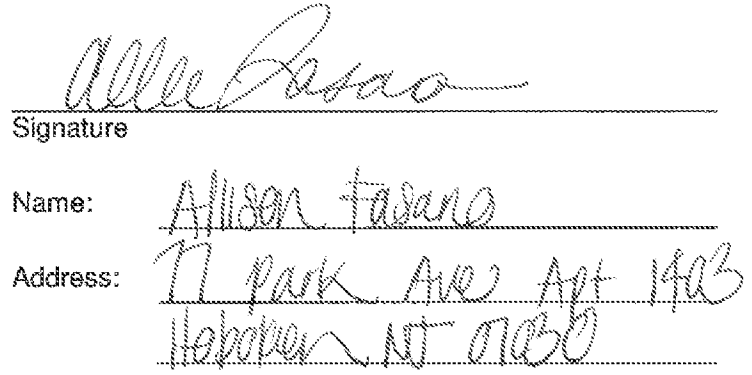 Allie Fasano
Signature
Name: Allison Fasano
Address: 77 Park Ave Apt 1403
Hoboken NJ 07030